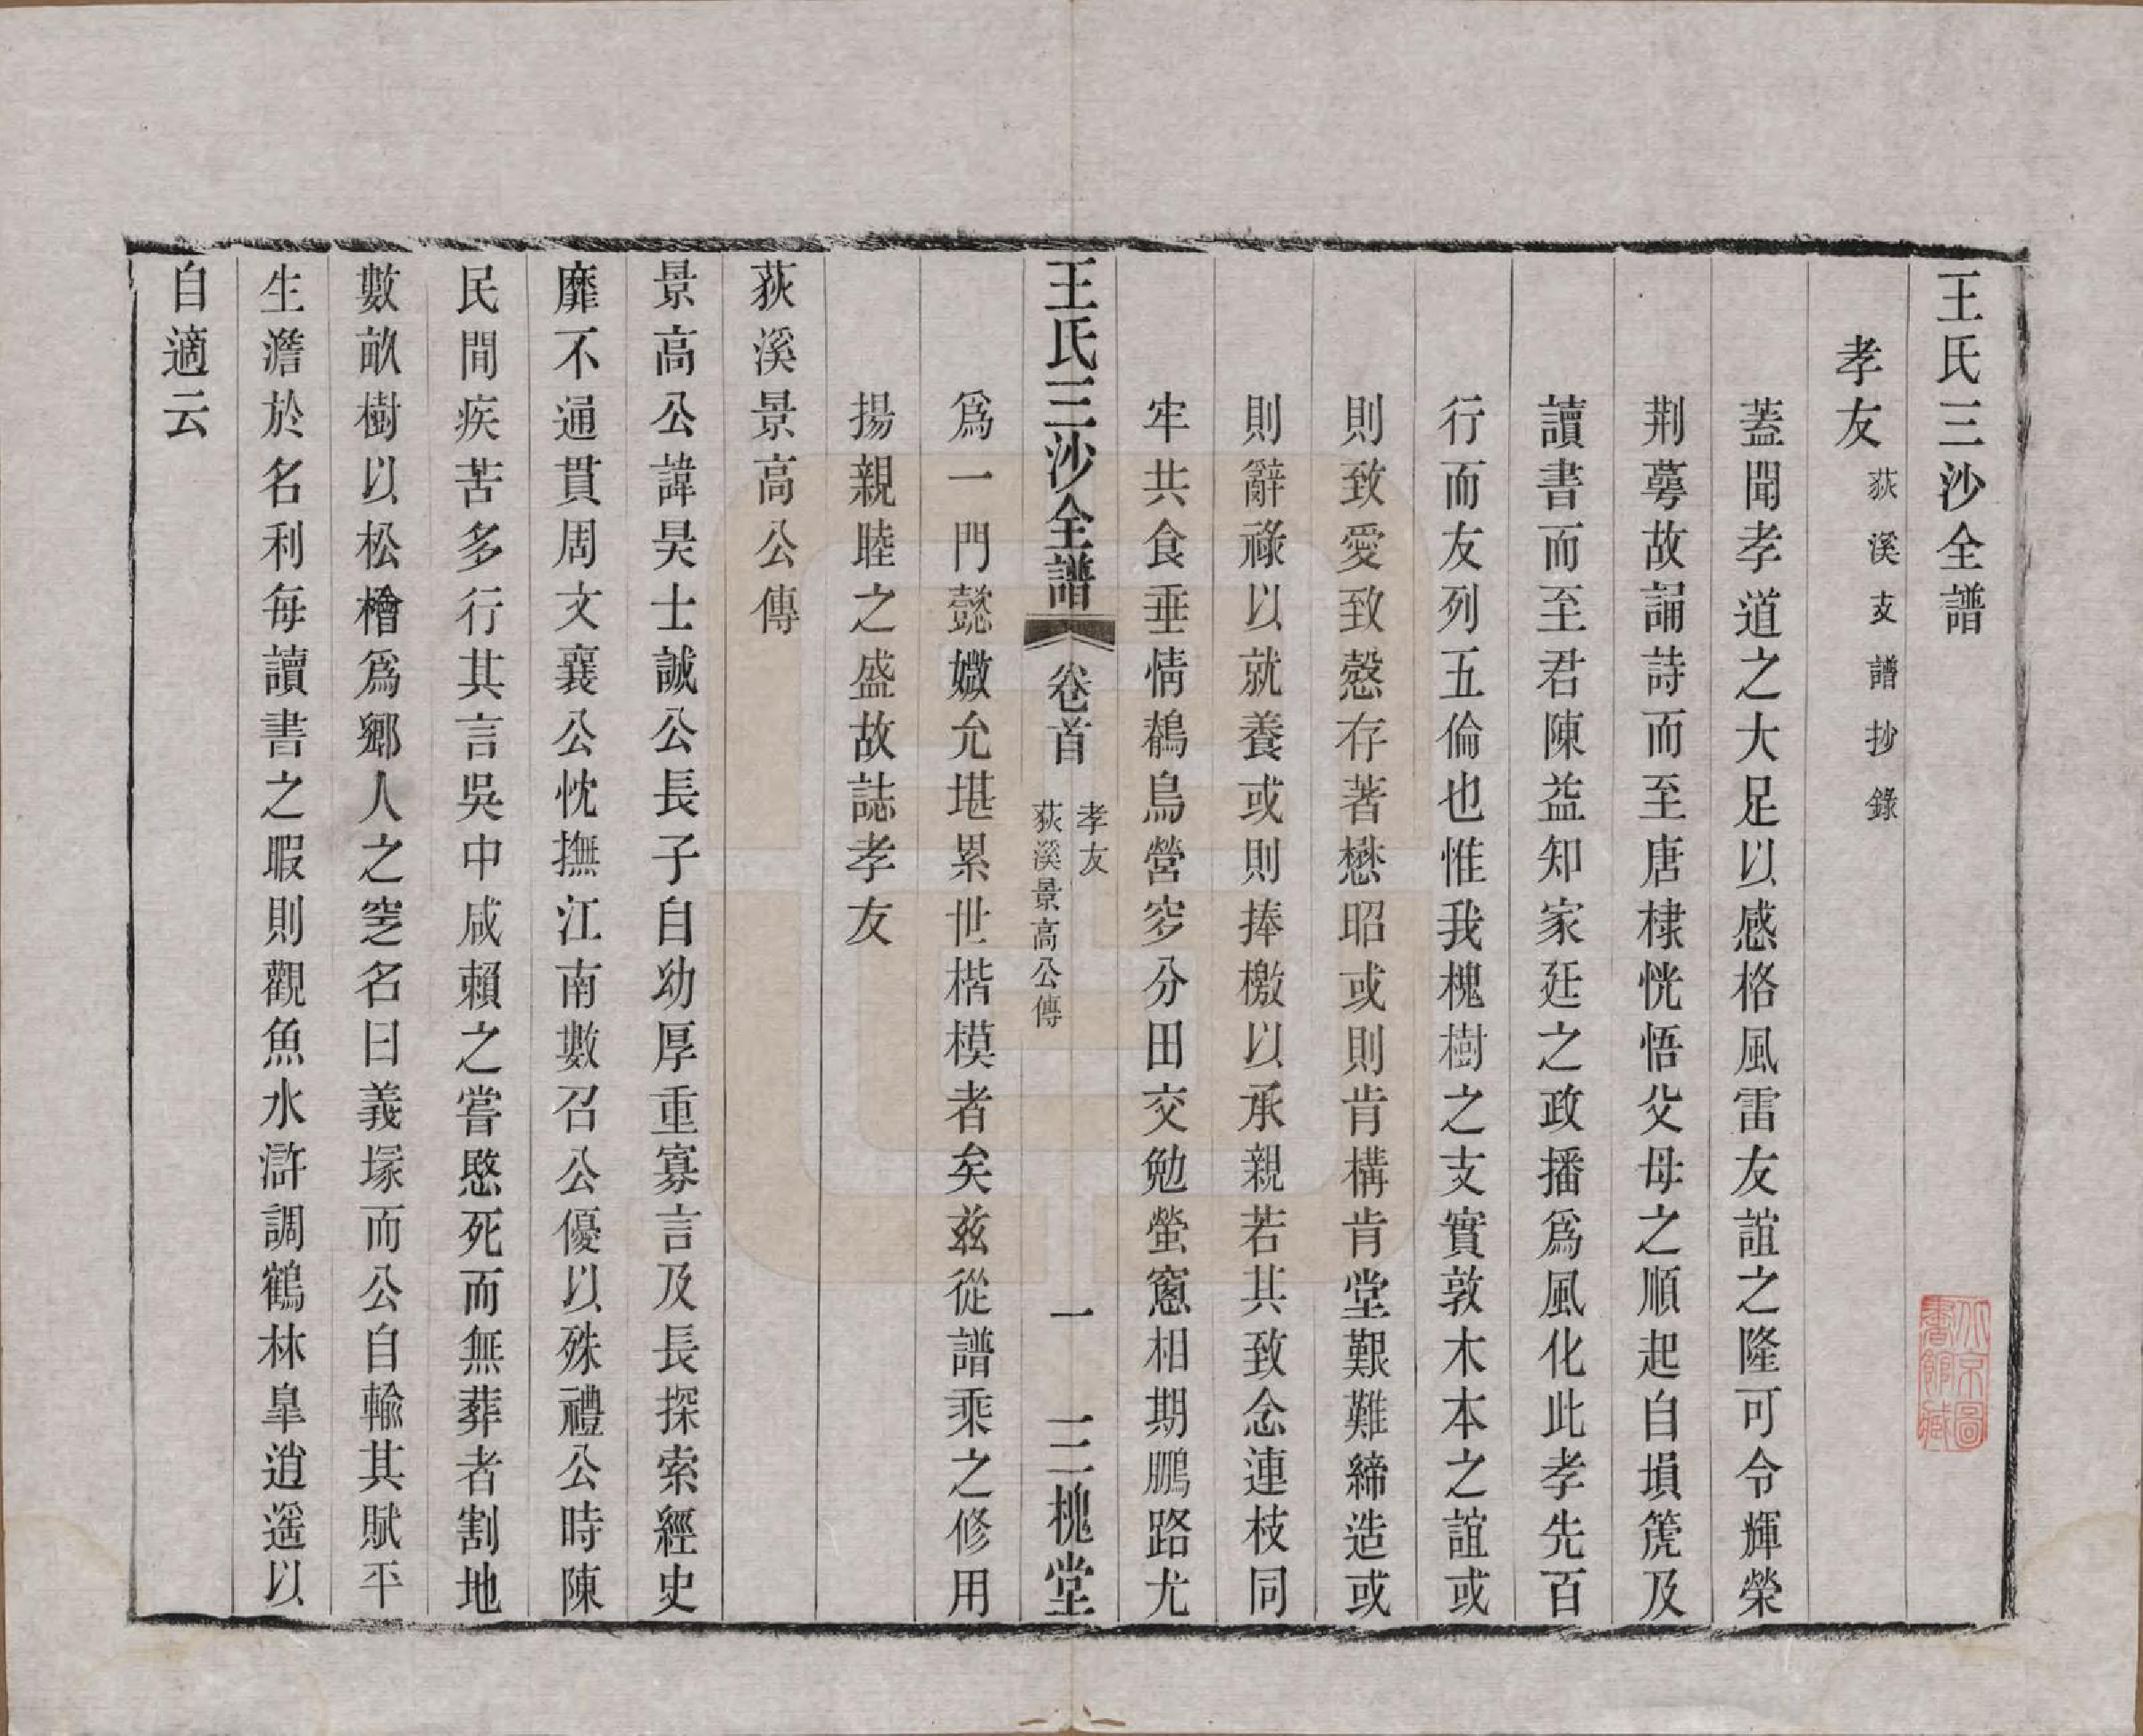 王氏三沙全譜
孝友 荻溪支譜抄錄
蓋聞孝道之大足以感格風雷友誼之隆可令輝榮
荆蕚故誦詩而至唐棣恍悟父母之順起自塤篪及
讀書而至君陳益知家廷之政播爲風化此孝先百
行而友列五倫也惟我槐樹之支實敦木本之誼或
則致愛致愨存著懋昭或則肯構肯堂艱難締造或
則辭祿以就養或則捧檄以承親若其致念連枝同
牢共食垂情鶺鳥營穸分田交勉螢窻相期鵬路尤
王氏三沙全譜 卷首 孝友 荻溪景高公傳 一 三槐堂
爲一門懿媺允堪累世楷模者矣兹從譜乘之修用
揚親睦之盛故誌孝友
荻溪景高公傳
景高公諱昊士誠公長子自幼厚重寡言及長探索經史
靡不通貫周文襄公忱撫江南數召公優以殊禮公時陳
民間疾苦多行其言吳中咸賴之嘗愍死而無葬者割地
數畝樹以松檜爲鄉人之窆名曰義塚而公自輸其賦平
生澹於名利每讀書之暇則觀魚水滸調鶴林臯逍遥以
自適云